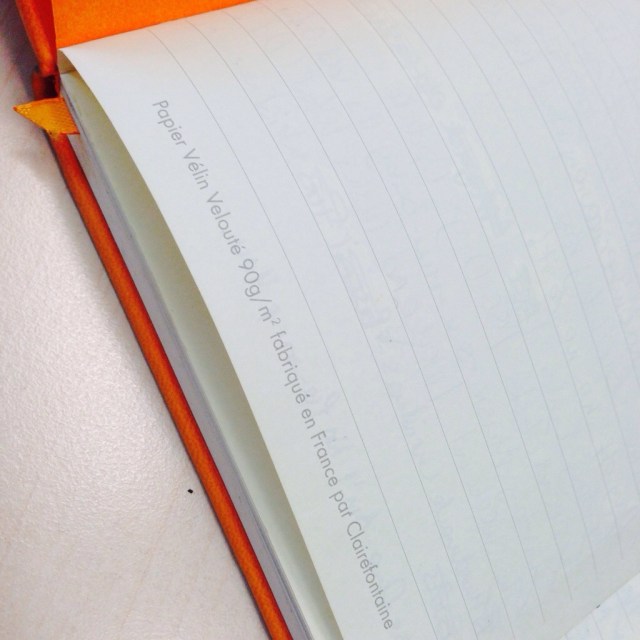 Papier Vélin Velouté 90g/m² fabriqué en France par Clairefontaine